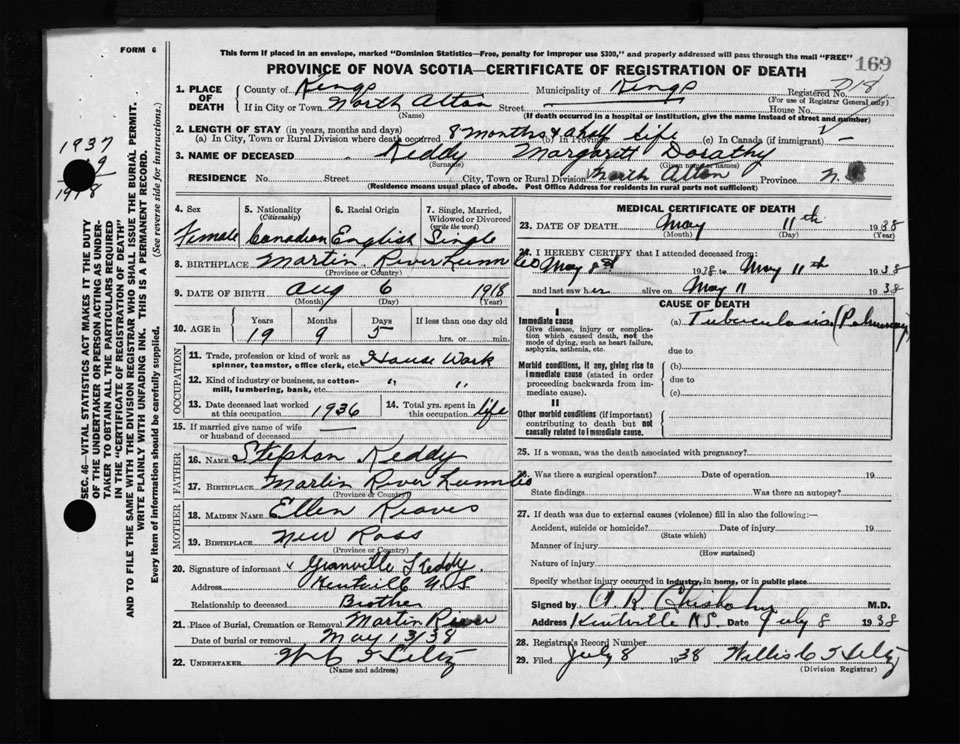 FORM 6
This form if placed in an envelope, marked "Dominion Statistics—Free, penalty for improper use $300," and properly addressed will pass through the mail "FREE"
169
PROVINCE OF NOVA SCOTIA—CERTIFICATE OF REGISTRATION OF DEATH
1. PLACE OF DEATH
County of Kings Municipality of Kings Registered No. 718
(For use of Registrar General only)
If in City or Town North Alton Street House No.
(Name) (If death occurred in a hospital or institution, give the name instead of street and number)
2. LENGTH OF STAY (in years, months and days)
(a) In City, Town or Rural Division where death occurred 8 months & a half (b) In Province life (c) In Canada (if immigrant) —
3. NAME OF DECEASED Keddy Margarett Dorathy
(Surname) (Given name or names)
RESIDENCE No. Street City, Town or Rural Division North Alton Province N.
(Residence means usual place of abode. Post Office Address for residents in rural parts not sufficient)
1937
19
1918
SEC. 46—VITAL STATISTICS ACT MAKES IT THE DUTY
OF THE UNDERTAKER OR PERSON ACTING AS UNDER-
TAKER TO OBTAIN ALL THE PARTICULARS REQUIRED
IN THE "CERTIFICATE OF REGISTRATION OF DEATH"
AND TO FILE THE SAME WITH THE DIVISION REGISTRAR WHO SHALL ISSUE THE BURIAL PERMIT.
WRITE PLAINLY WITH UNFADING INK. THIS IS A PERMANENT RECORD.
Every item of Information should be carefully supplied. (See reverse side for instructions.)
4. Sex Female
5. Nationality (Citizenship) Canadian
6. Racial Origin English
7. Single, Married, Widowed or Divorced (write the word) Single
8. BIRTHPLACE Martin River Lunn Co
(Province or Country)
9. DATE OF BIRTH Aug 6 1918
(Month) (Day) (Year)
10. AGE in Years Months Days If less than one day old
19 9 5 hrs. or min.
OCCUPATION
11. Trade, profession or kind of work as spinner, teamster, office clerk, etc. House Work
12. Kind of industry or business, as cotton-mill, lumbering, bank, etc. " "
13. Date deceased last worked at this occupation 1936
14. Total yrs. spent in this occupation life
15. If married give name of wife or husband of deceased —
FATHER
16. NAME Stephan Keddy
17. BIRTHPLACE Martin River Lunn Co
(Province or Country)
MOTHER
18. MAIDEN NAME Ellen Reaves
19. BIRTHPLACE New Ross
(Province or Country)
20. Signature of informant Granville Keddy
Address Kentville N.S
Relationship to deceased Brother
21. Place of Burial, Cremation or Removal Martin River
Date of burial or removal May 13/38
22. UNDERTAKER
(Name and address)
MEDICAL CERTIFICATE OF DEATH
23. DATE OF DEATH May 11th 1938
(Month) (Day) (Year)
24. I HEREBY CERTIFY that I attended deceased from:
May 1938 to May 11th 1938
and last saw her alive on May 11 1938
CAUSE OF DEATH
I
Immediate cause (a) Tuberculosis (Pulmonary)
Give disease, injury or complication which caused death, not the mode of dying, such as heart failure, asphyxia, asthenia, etc.
due to
Morbid conditions, if any, giving rise to immediate cause (stated in order proceeding backwards from immediate cause).
(b)
due to
(c)
II
Other morbid conditions (if important) contributing to death but not causally related to immediate cause.
25. If a woman, was the death associated with pregnancy?
26. Was there a surgical operation? Date of operation 19
State findings Was there an autopsy?
27. If death was due to external causes (violence) fill in also the following:—
Accident, suicide or homicide? Date of injury 19
(State which)
Manner of injury
(How sustained)
Nature of injury
Specify whether injury occurred in industry, in home, or in public place
Signed by M.D.
Address Kentville N.S. Date July 8 1938
28. Registrar's Record Number
29. Filed July 8 1938
(Division Registrar)